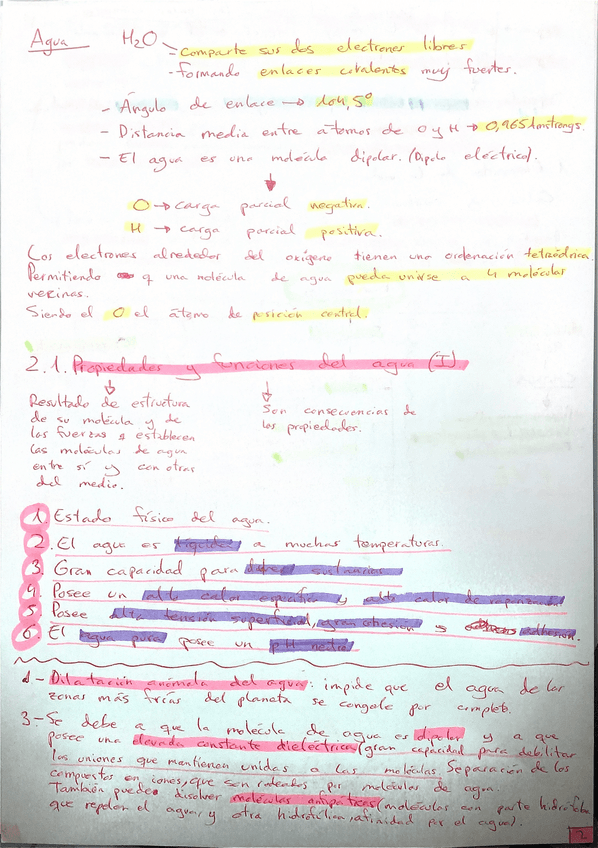 Agua H2O
- Comparte sus dos electrones libres
- formando enlaces covalentes muy fuertes.
- Ángulo de enlace → 104,5º
- Distancia media entre átomos de O y H → 0,965
- El agua es una molécula dipolar. (Dipolo eléctrico).
O → carga parcial negativa.
H → carga parcial positiva.
Los electrones alrededor del oxígeno tienen una ordenación tetraédrica.
Permitiendo q una molécula de agua pueda unirse a 4 moléculas
vecinas.
Siendo el O el átomo de posición central.
2.1. Propiedades y funciones del agua (I)
Resultado de estructura
de su molécula y de
las fuerzas q establecen
las moléculas de agua
entre sí y con otras
del medio.
Son consecuencias de
las propiedades.
1. Estado físico del agua.
2. El agua es líquida a muchas temperaturas.
3. Gran capacidad para disolver sustancias
4. Posee un alto calor específico y alto calor de vaporización
5. Posee alta tensión superficial, gran cohesión y adhesión.
6. El agua pura posee un pH neutro
1- Dilatación anómala del agua: impide que el agua de las
zonas más frías del planeta se congele por completo.
3- Se debe a que la molécula de agua es dipolar y a que
posee una elevada constante dieléctrica (gran capacidad para debilitar
las uniones que mantienen unidas a las moléculas. Separación de los
compuestos en iones, que son rodeados por moléculas de agua.
También puede disolver moléculas anfipáticas (moléculas con parte hidrófoba
que repelen el agua, y otra hidrofílica, afinidad por el agua).
2